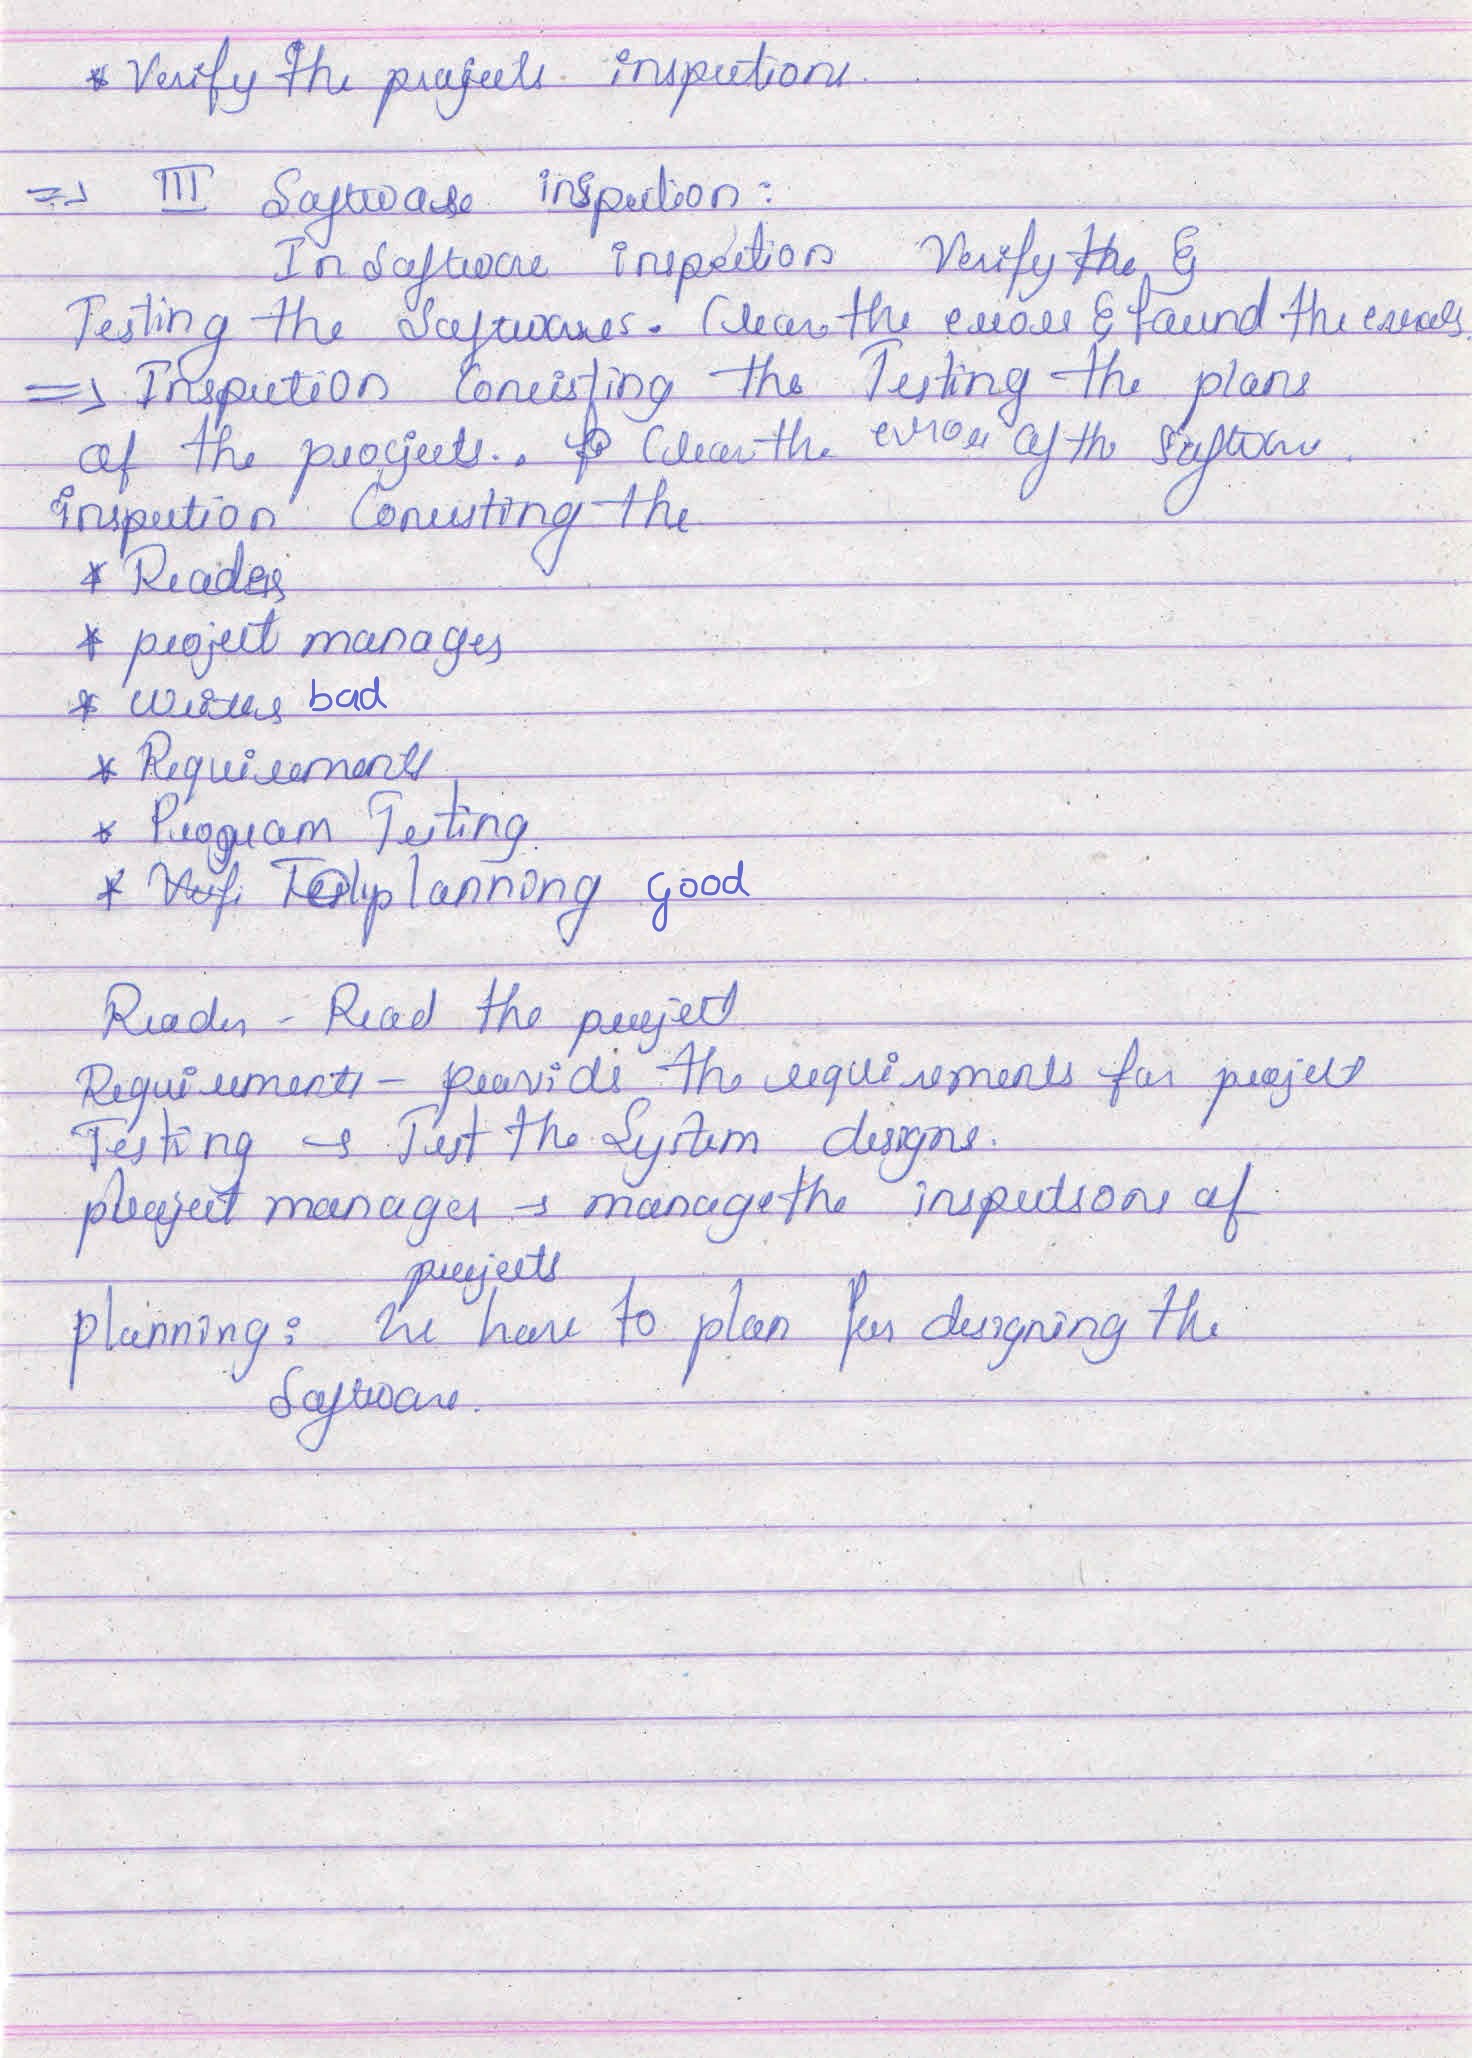 * Verify the projects inspections.
=> III Software inspection:
In Software inspection Verify the &
Testing the Softwares. Clear the errors & found the errors
=> Inspection Consisting the Testing the plans
of the projects.. Clear the error of the Software.
inspection Consisting the
* Readers
* project manager
* Writers bad
* Requirements
* Program Testing
* planning good
Reader - Read the project
Requirements - provide the requirements for project
Testing → Test the System designs.
project manager → manage the inspections of
projects
planning: We have to plan for designing the
Software.